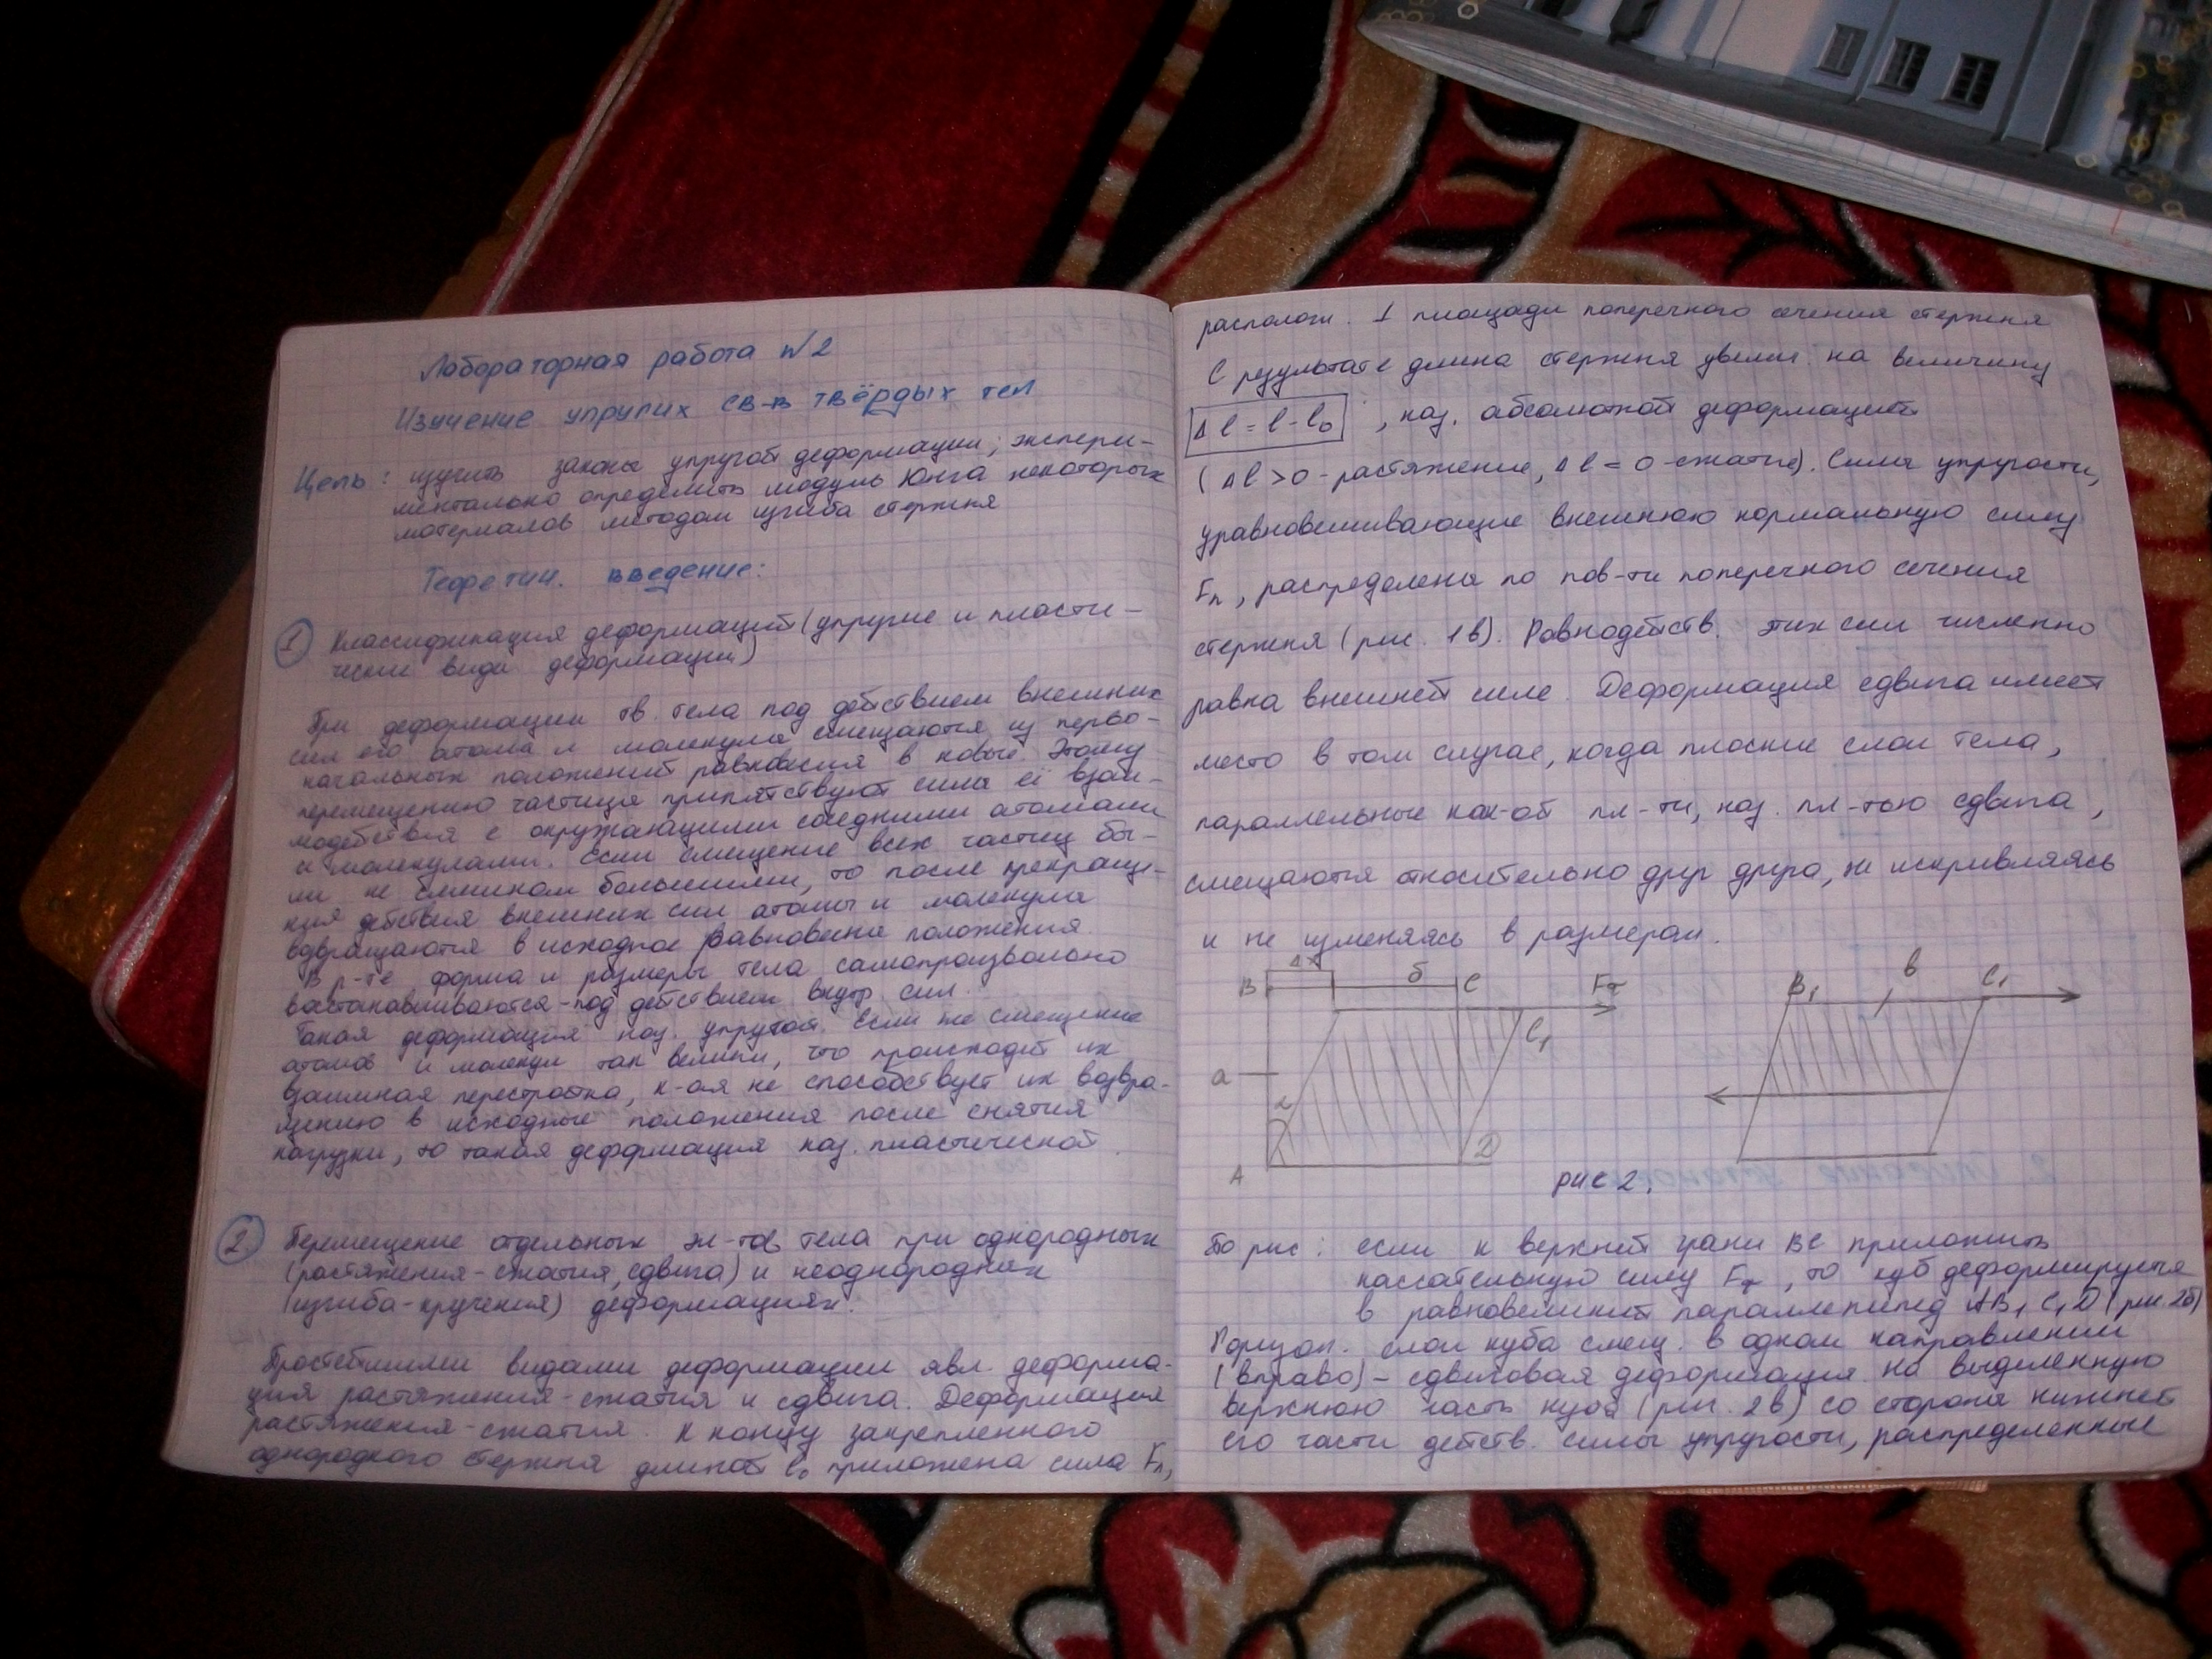 Лабораторная работа №2
Изучение упругих св-в твёрдых тел
Цель: изучить законы упругой деформации; экспери-
ментально определить модуль Юнга некоторых
материалов методом изгиба стержня
Теоретич. введение:
1 Классификация деформаций (упругие и пласти-
ческие виды деформации)
При деформации тв. тела под действием внешних
сил его атомы и молекулы смещаются из перво-
начальных положений равновесия в новые. Этому
перемещению частицы припятствуют силы её взаи-
модействия с окружающими соседними атомами
и молекулами. Если смещение всех частиц бы-
ли не слишком большими, то после прекраще-
ния действия внешних сил атомы и молекулы
возвращаются в исходное равновесие положения.
В р-те форма и размеры тела самопроизвольно
востанавливаются - под действием внутр. сил.
Такая деформация наз. упругой. Если же смещение
атомов и молекул так велики, что происходит их
взаимная перестройка, к-ая не способствует их возвра-
щению в исходные положения после снятия
нагрузки, то такая деформация наз. пластической.
2. Перемещение отдельных эл-тов тела при однородных
(растяжения-сжатия, сдвига) и неоднородных
(изгиба-кручения) деформациях.
Простейшими видами деформации явл. деформа-
ция растяжения-сжатия и сдвига. Деформация
растяжения-сжатия. К концу закрепленного
однородного стержня длиной l₀ приложена сила Fn,
располож. ⊥ площади поперечного сечения стержня
С результате длина стержня увелич. на величину
Δl = l - l₀ , наз. абсолютной деформацией
(Δl > 0 - растяжение, Δl = 0 - сжатие). Силы упругости,
уравновешивающие внешнюю нормальную силу
Fn, распределены по пов-ти поперечного сечения
стержня (рис. 1в). Равнодейств. этих сил численно
равна внешней силе. Деформация сдвига имеет
место в том случае, когда плоские слои тела,
параллельные как-об пл-ти, наз. пл-тью сдвига,
смещаются относительно друг друга, не искривляясь
и не изменяясь в размерах.
Δx б в
B C Fτ B₁ C₁
C₁
а
α
A D
рис 2.
По рис: если к верхней грани BC приложить
кассательную силу Fτ, то куб деформируется
в равновеликий параллепипед AB₁C₁D (рис. 2б)
Горизон. слои куба смещ. в одном направлении
(вправо) - сдвиговая деформация. На выделенную
верхнюю часть куба (рис. 2в) со стороны нижней
его части действ. силы упругости, распределенные